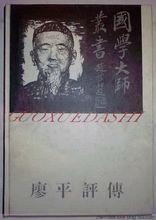 國學大師
叢書
GUOXUEDASHI
廖平評傳